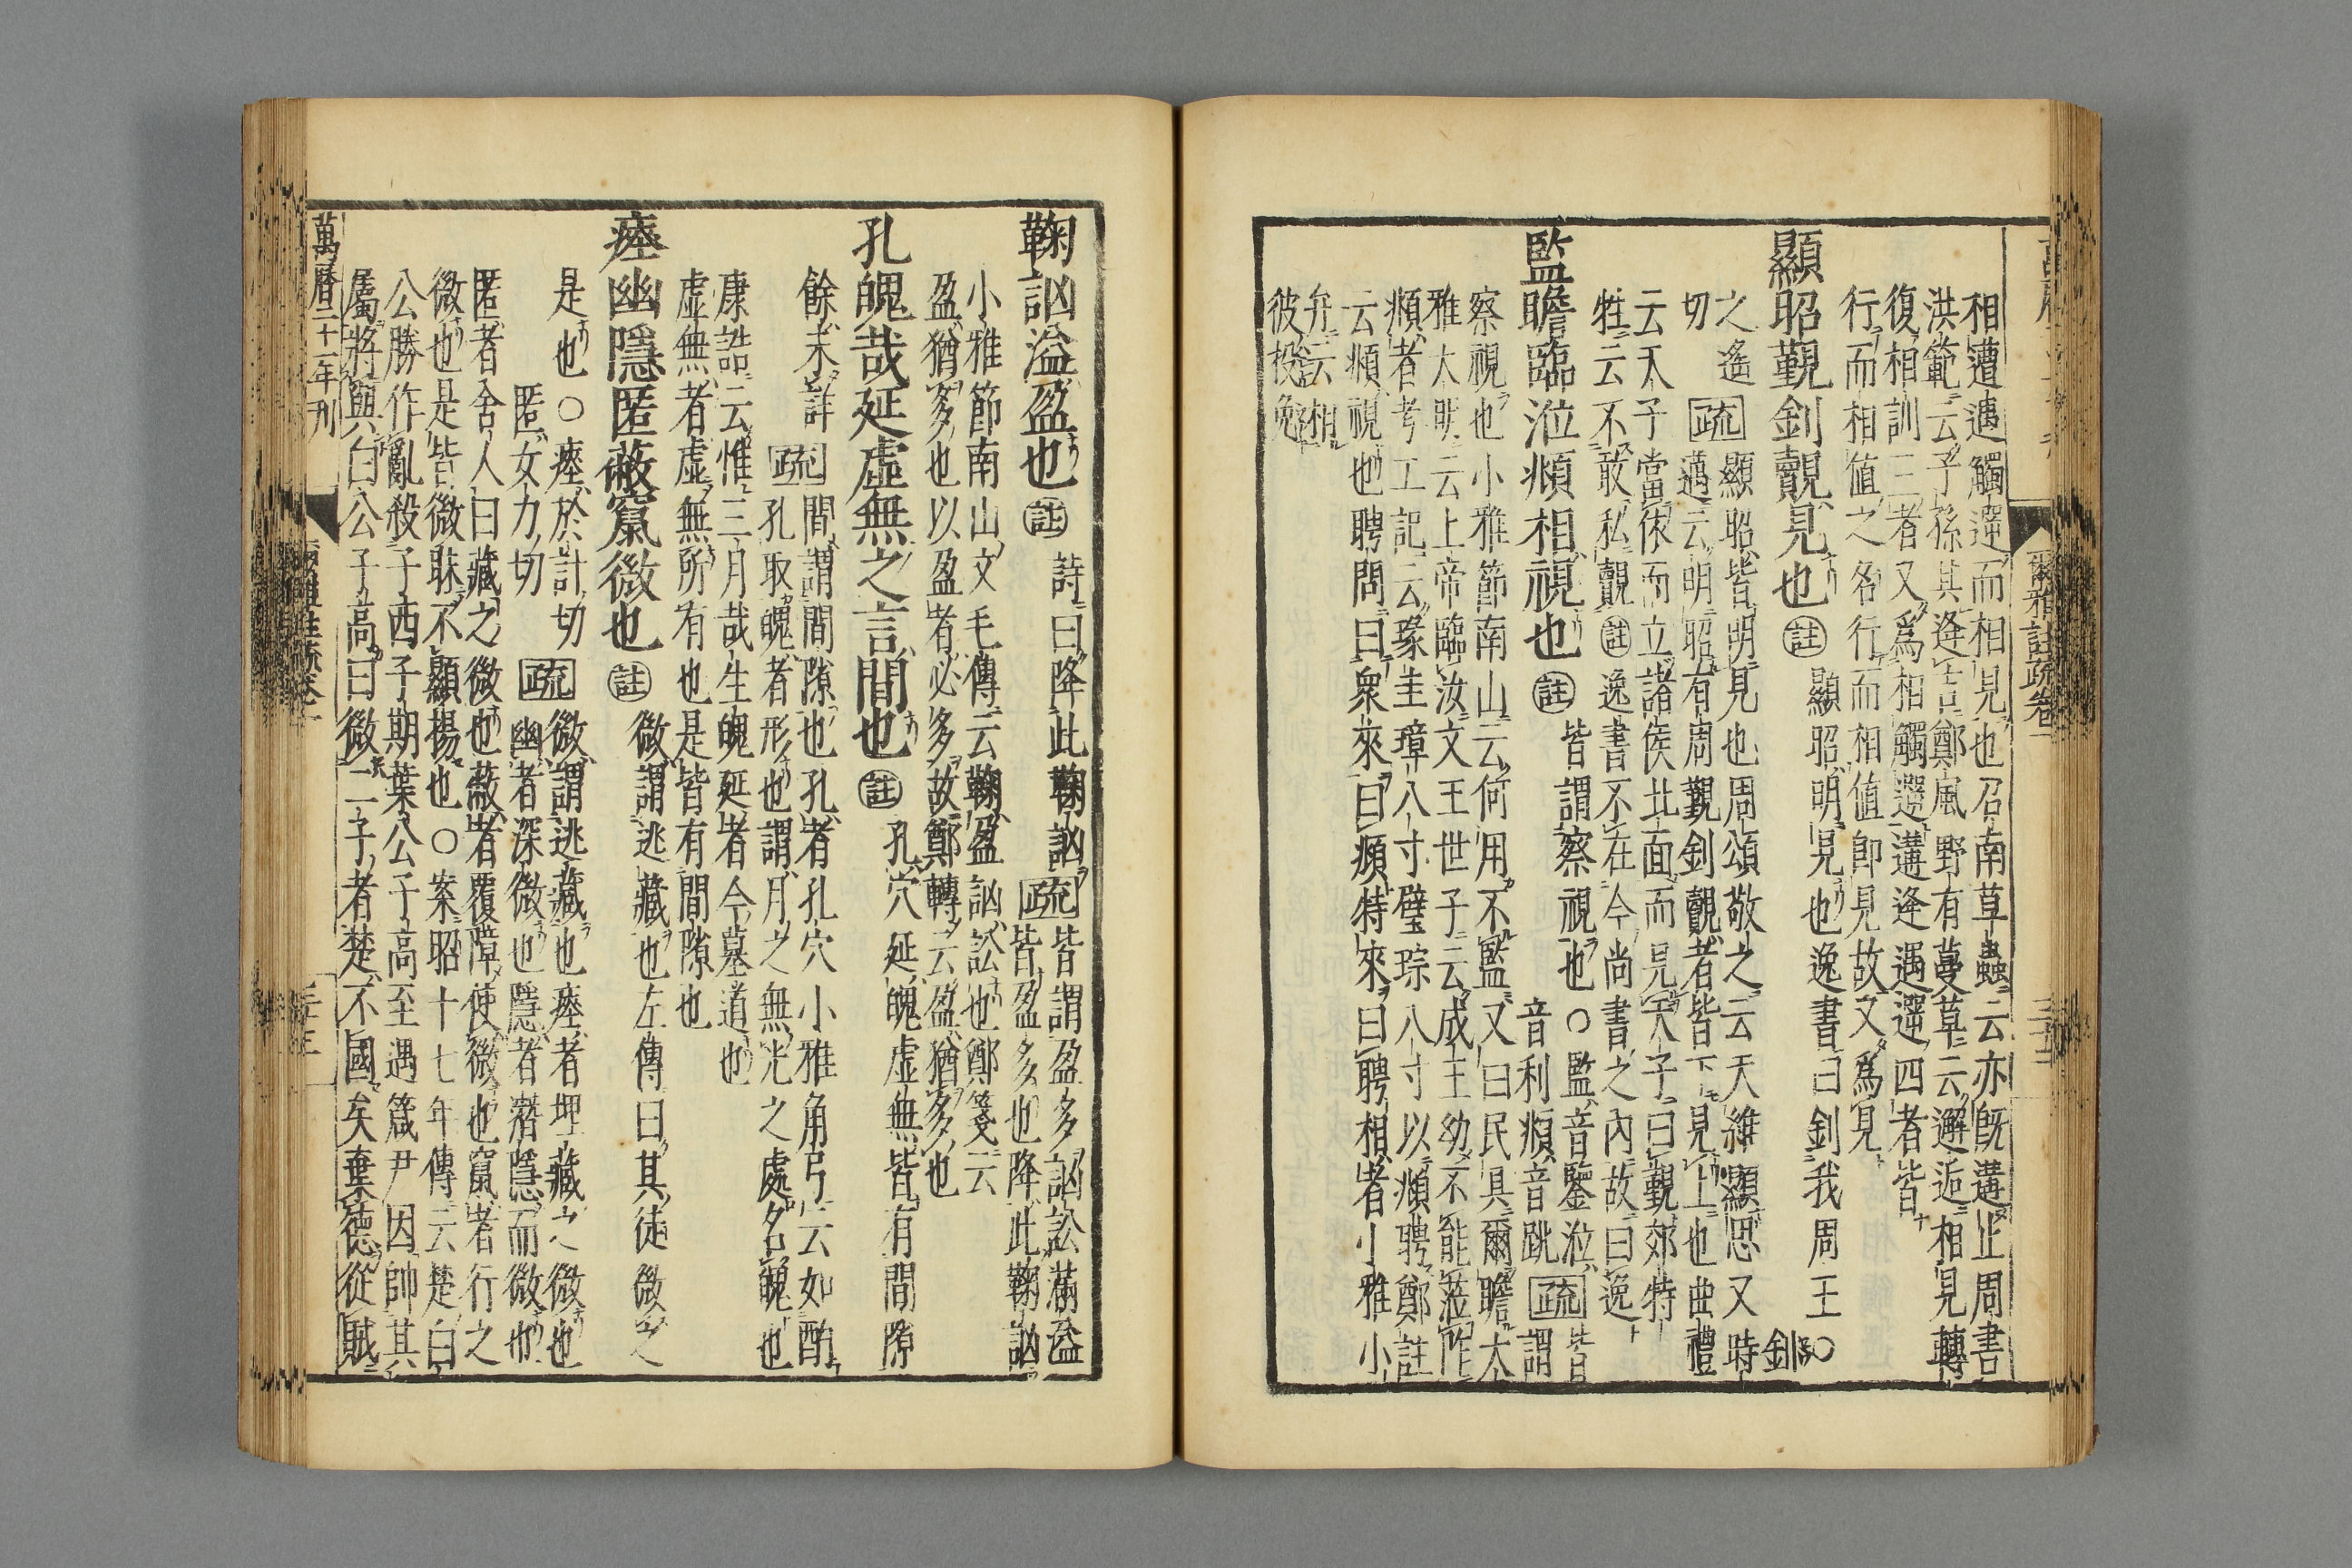 爾雅註疏卷一
相遭遇觸遻而相見也召南草蟲云亦既遘止周書
洪範云子孫其逢吉鄭風野有蔓草云邂逅相見轉
復相訓三者又爲相觸遻遘逢遇遻四者皆
行而相值之各行而相值即見故又爲見
顯昭覲釗覿見也
註顯昭明見也逸書曰釗我周王○釗
之遙
切
疏顯昭皆明見也周頌敬之云天維顯思又時
邁云明昭有周覲釗覿者皆下見上也曲禮
云天子當依而立諸侯北面而見天子曰覲郊特
牲云不敢私覿註逸書不在今尚書之內故曰逸
監瞻臨涖頫相視也
註皆謂察視也○監音鑒涖
音利頫音跳
疏皆謂
察視也小雅節南山云何用不監又曰民具爾瞻大
雅大明云上帝臨汝文王世子云成王幼不能涖阼
頫者考工記云瑑圭璋八寸璧琮八寸以頫聘鄭註
云頫視也聘問曰衆來曰頫特來曰聘相者小雅小
弁云相
彼投兔
鞠訩溢盈也
註詩曰降此鞠訩
疏皆謂盈多訩訟滿溢
皆盈多也降此鞠訩
小雅節南山文毛傳云鞠盈訩訟也鄭箋云
盈猶多也以盈者必多故鄭轉云盈猶多也
孔魄哉延虛無之言間也
註孔穴延魄虛無皆有間隙
餘未詳
疏間謂間隙也孔者孔穴小雅角弓云如酌
孔取魄者形也謂月之無光之處名魄也
康誥云惟三月哉生魄延者今墓道也
虛無者虛無所有也是皆有間隙也
瘞幽隱匿蔽竄微也
註微謂逃藏也左傳曰其徒微之
是也○瘞於計切
匿女力切
疏微謂逃藏也瘞者埋藏之微也
幽者深微也隱者潛隱而微也
匿者舍人曰藏之微也蔽者覆障使微也竄者行之
微也是皆微昧不顯揚也○案昭十七年傳云楚白
公勝作亂殺子西子期葉公子高至遇箴尹因帥其
屬將與白公子高曰微二子者楚不國矣棄德從賊
萬曆二十一年刊